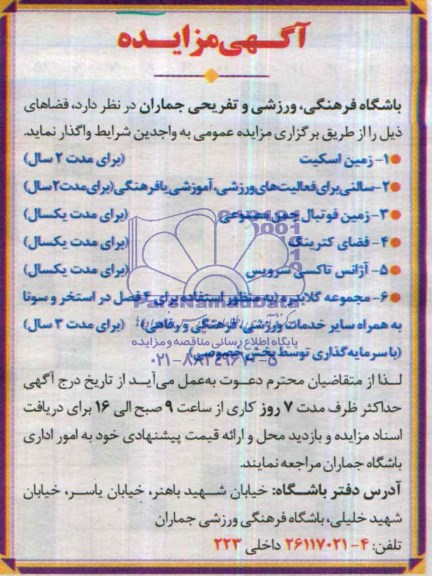 آگهی مزایده
باشگاه فرهنگی، ورزشی و تفریحی جماران در نظر دارد، فضاهای
ذیل را از طریق برگزاری مزایده عمومی به واجدین شرایط واگذار نماید.
۱- زمین اسکیت (برای مدت ۲ سال)
۲- سالنی برای فعالیت‌های ورزشی، آموزشی یا فرهنگی (برای مدت ۲ سال)
۳- زمین فوتبال چمن مصنوعی (برای مدت یکسال)
۴- فضای کترینگ (برای مدت یکسال)
۵- آژانس تاکسی سرویس (برای مدت یکسال)
۶- مجموعه گلابدره (به منظور استفاده برای ۴ فصل در استخر و سونا
به همراه سایر خدمات ورزشی، فرهنگی و رفاهی) (برای مدت ۳ سال)
(با سرمایه‌گذاری توسط بخش خصوصی)
ParsNamadData
پایگاه اطلاع رسانی مناقصه و مزایده
۰۲۱-۸۸۳۴۹۶۷۰-۵
لذا از متقاضیان محترم دعوت به‌عمل می‌آید از تاریخ درج آگهی
حداکثر ظرف مدت ۷ روز کاری از ساعت ۹ صبح الی ۱۶ برای دریافت
اسناد مزایده و بازدید محل و ارائه قیمت پیشنهادی خود به امور اداری
باشگاه جماران مراجعه نمایند.
آدرس دفتر باشگاه: خیابان شهید باهنر، خیابان یاسر، خیابان
شهید خلیلی، باشگاه فرهنگی ورزشی جماران
تلفن: ۴-۲۶۱۱۷۰۲۱ داخلی ۲۲۳